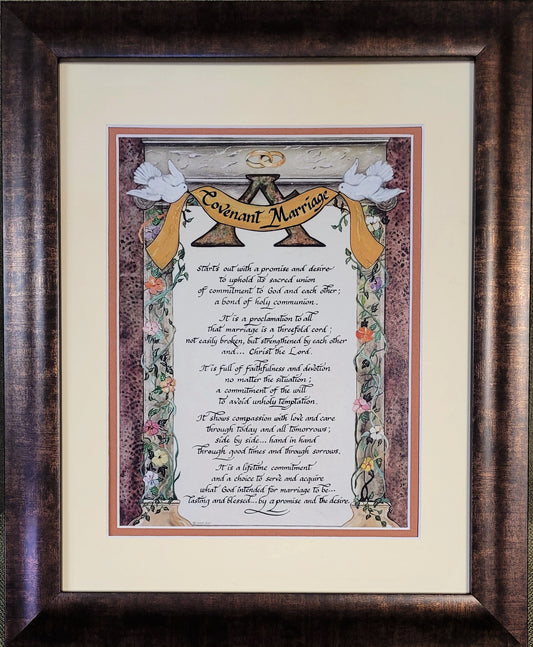 A
Covenant Marriage
starts out with a promise and desire
to uphold its sacred union
of commitment to God and each other;
a bond of holy communion.
It is a proclamation to all
that marriage is a threefold cord;
not easily broken, but strengthened by each other
and... Christ the Lord.
It is full of faithfulness and devotion
no matter the situation;
a commitment of the will
to avoid unholy temptation.
It shows compassion with love and care
through today and all tomorrows;
side by side... hand in hand
through good times and through sorrows.
It is a lifetime commitment
and a choice to serve and acquire
what God intended for marriage to be...
lasting and blessed...by a promise and the desire.